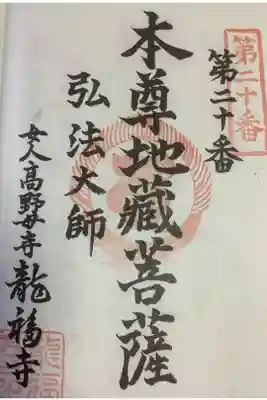 第二十番
第二十番
本尊地藏菩薩
弘法大師
女人高野 寺龍福寺